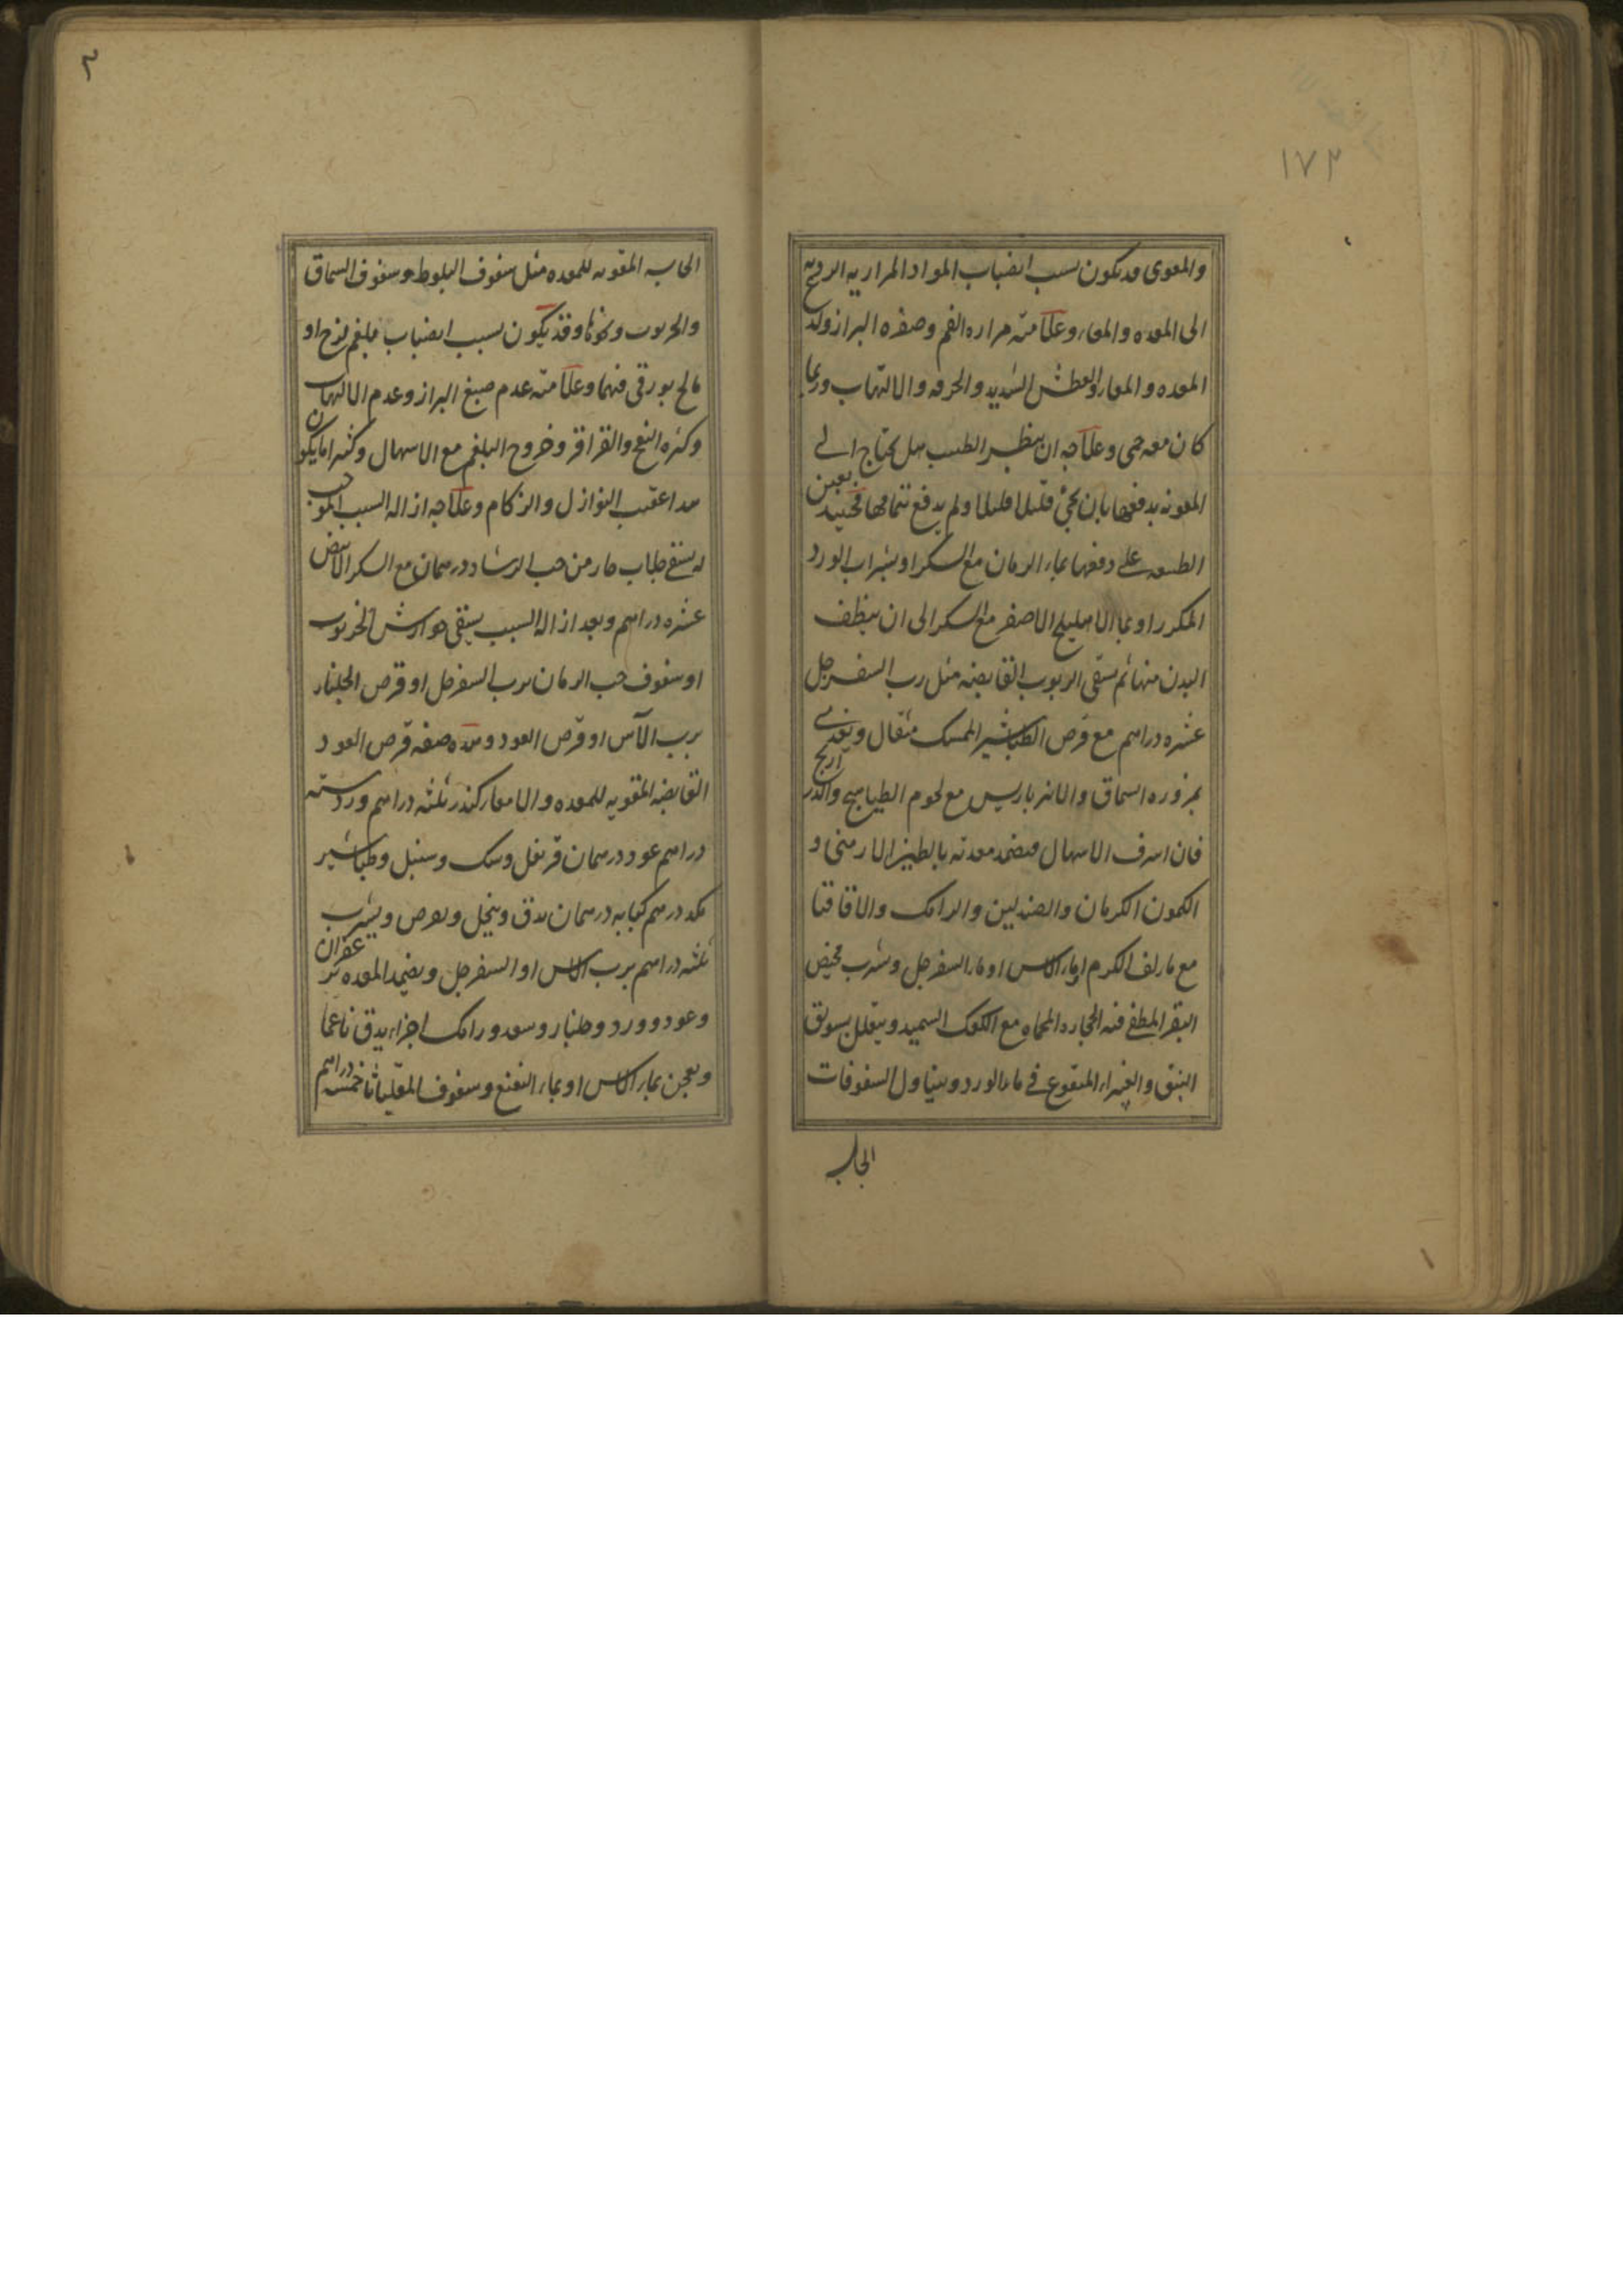 ١٧٢
والمعوى قد يكون بسبب انصباب المواد المراريه الرديه
الى المعده والمعاء وعلامته مراره الفم وصفره البراز ولذع
المعده والمعاء والعطش الشديد والحرقه والالتهاب وربما
كان معه حمى وعلاجه ان ينظر الطبيب هل يحتاج الى
المعونه بدفعها بان يجئ قليلا قليلا ولم يدفع بتمامها فحينئذ يعين
الطبيعه على دفعها بماء الرمان مع السكر او بشراب الورد
المكرر او بماء الاهليلج الاصفر مع السكر الى ان ينظف
البدن منها ثم يسقى الربوب القابضه مثل رب السفرجل
عشره دراهم مع قرص الطباشير الممسك مثقال ويغذى
بمزوره السماق والانبرباريس مع لحوم الطياهيج والدراريج
فان اسرف الاسهال فيضمد معدته بالطين الارمنى و
الكمون الكرمان والصندلين والرامك والاقاقيا
مع ماء لف الكرم او ماء الاس او ماء السفرجل وشرب مخيض
البقر المطفى فيه الحجاره المحماه مع الكعك السميد ويتعلل بسويق
النبق والغبيراء المنقوع فى ماء الورد ويتناول السفوفات
الحابسه
٢
الحابسه المقويه للمعده مثل سفوف البلوط وسفوف السماق
والخرنوب ونحوها وقد يكون بسبب انصباب بلغم لزج او
مالح بورقى فيهما وعلامته عدم صبغ البراز وعدم الالتهاب
وكثره النفخ والقراقر وخروج البلغم مع الاسهال وكثيرا ما يكون
هذا عقيب النوازل والزكام وعلاجه ازاله السبب الموجب
له يسقى جلاب حار من حب الرشاد درهمان مع السكر الابيض
عشره دراهم وبعد ازاله السبب يسقى جوارش الخرنوب
او سفوف حب الرمان برب السفرجل او قرص الجلنار
برب الآس او قرص العود وهذه صفه قرص العود
القابضه المقويه للمعده والامعاء كندر ثلثه دراهم ورد سته
دراهم عود درهمان قرنفل وسك وسنبل وطباشير
مكد درهم كبابه درهمان يدق وينخل ويقرص ويشرب
ثلثه دراهم برب الاس او السفرجل ويضمد المعده بزعفران
وعود وورد وجلنار وسعد ورامك اجزاء يدق ناعما
ويعجن بماء الاس او بماء النعنع وسفوف المقلياثا خمسه دراهم